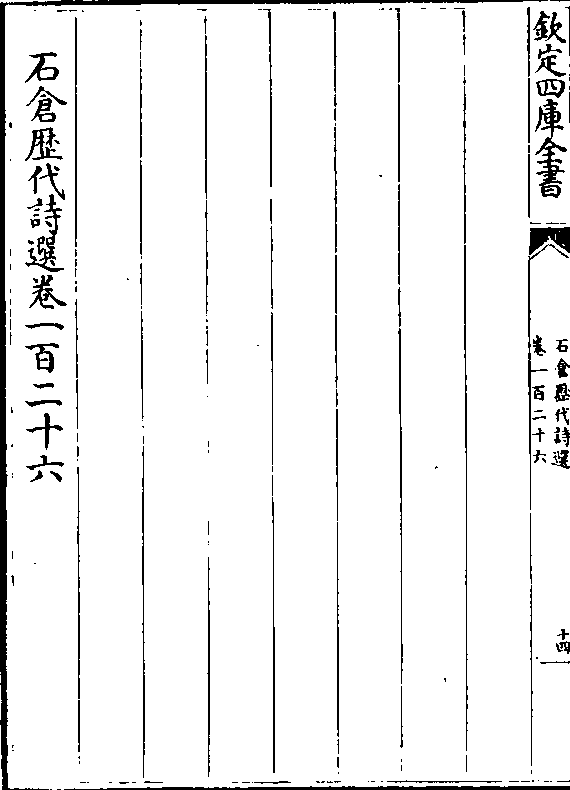 欽定四庫全書
石倉歷代詩選
卷一百二十六
十四
石倉歷代詩選卷一百二十六